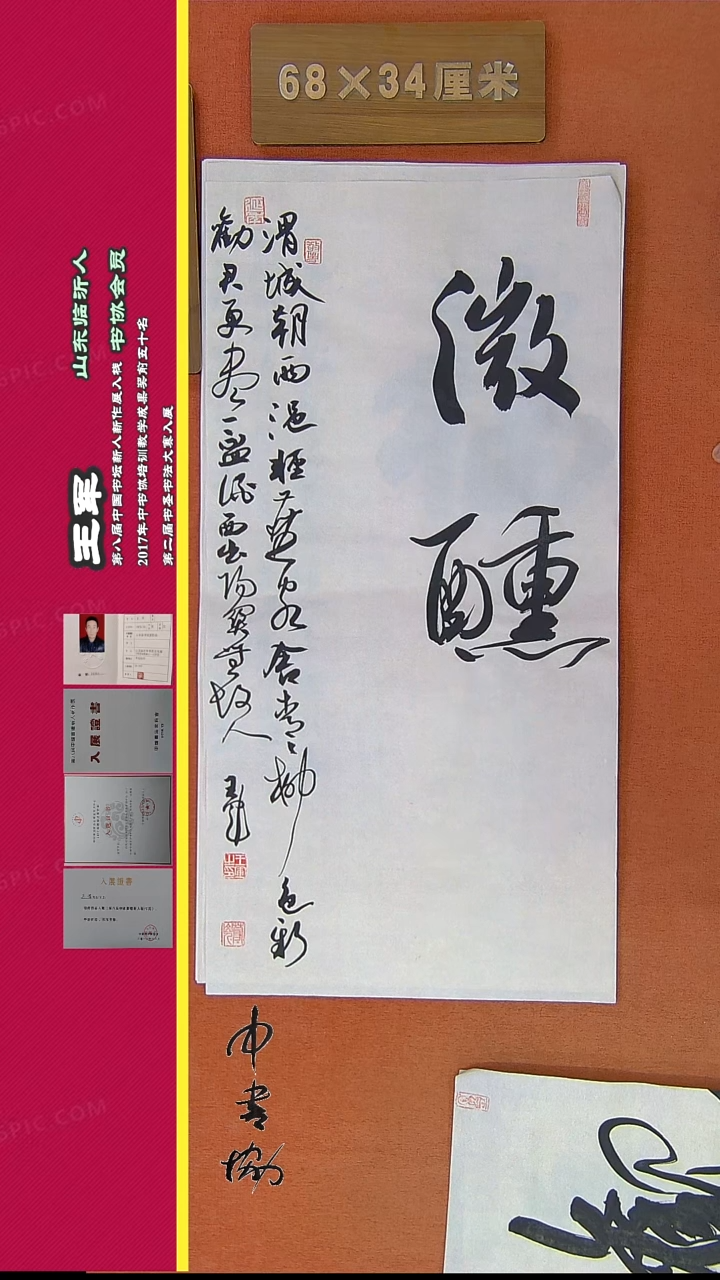 68×34厘米
微醺
渭城朝雨浥輕塵客舍青々柳色新
勸君更盡一盃酒西出陽關無故人
王軍
中書協
山东临沂人
书协会员
王军
第八届中国书坛新人新作展入展
2017年中书协培训教学成果奖前五十名
第二届书圣书法大赛入展
入展證書
入展證書